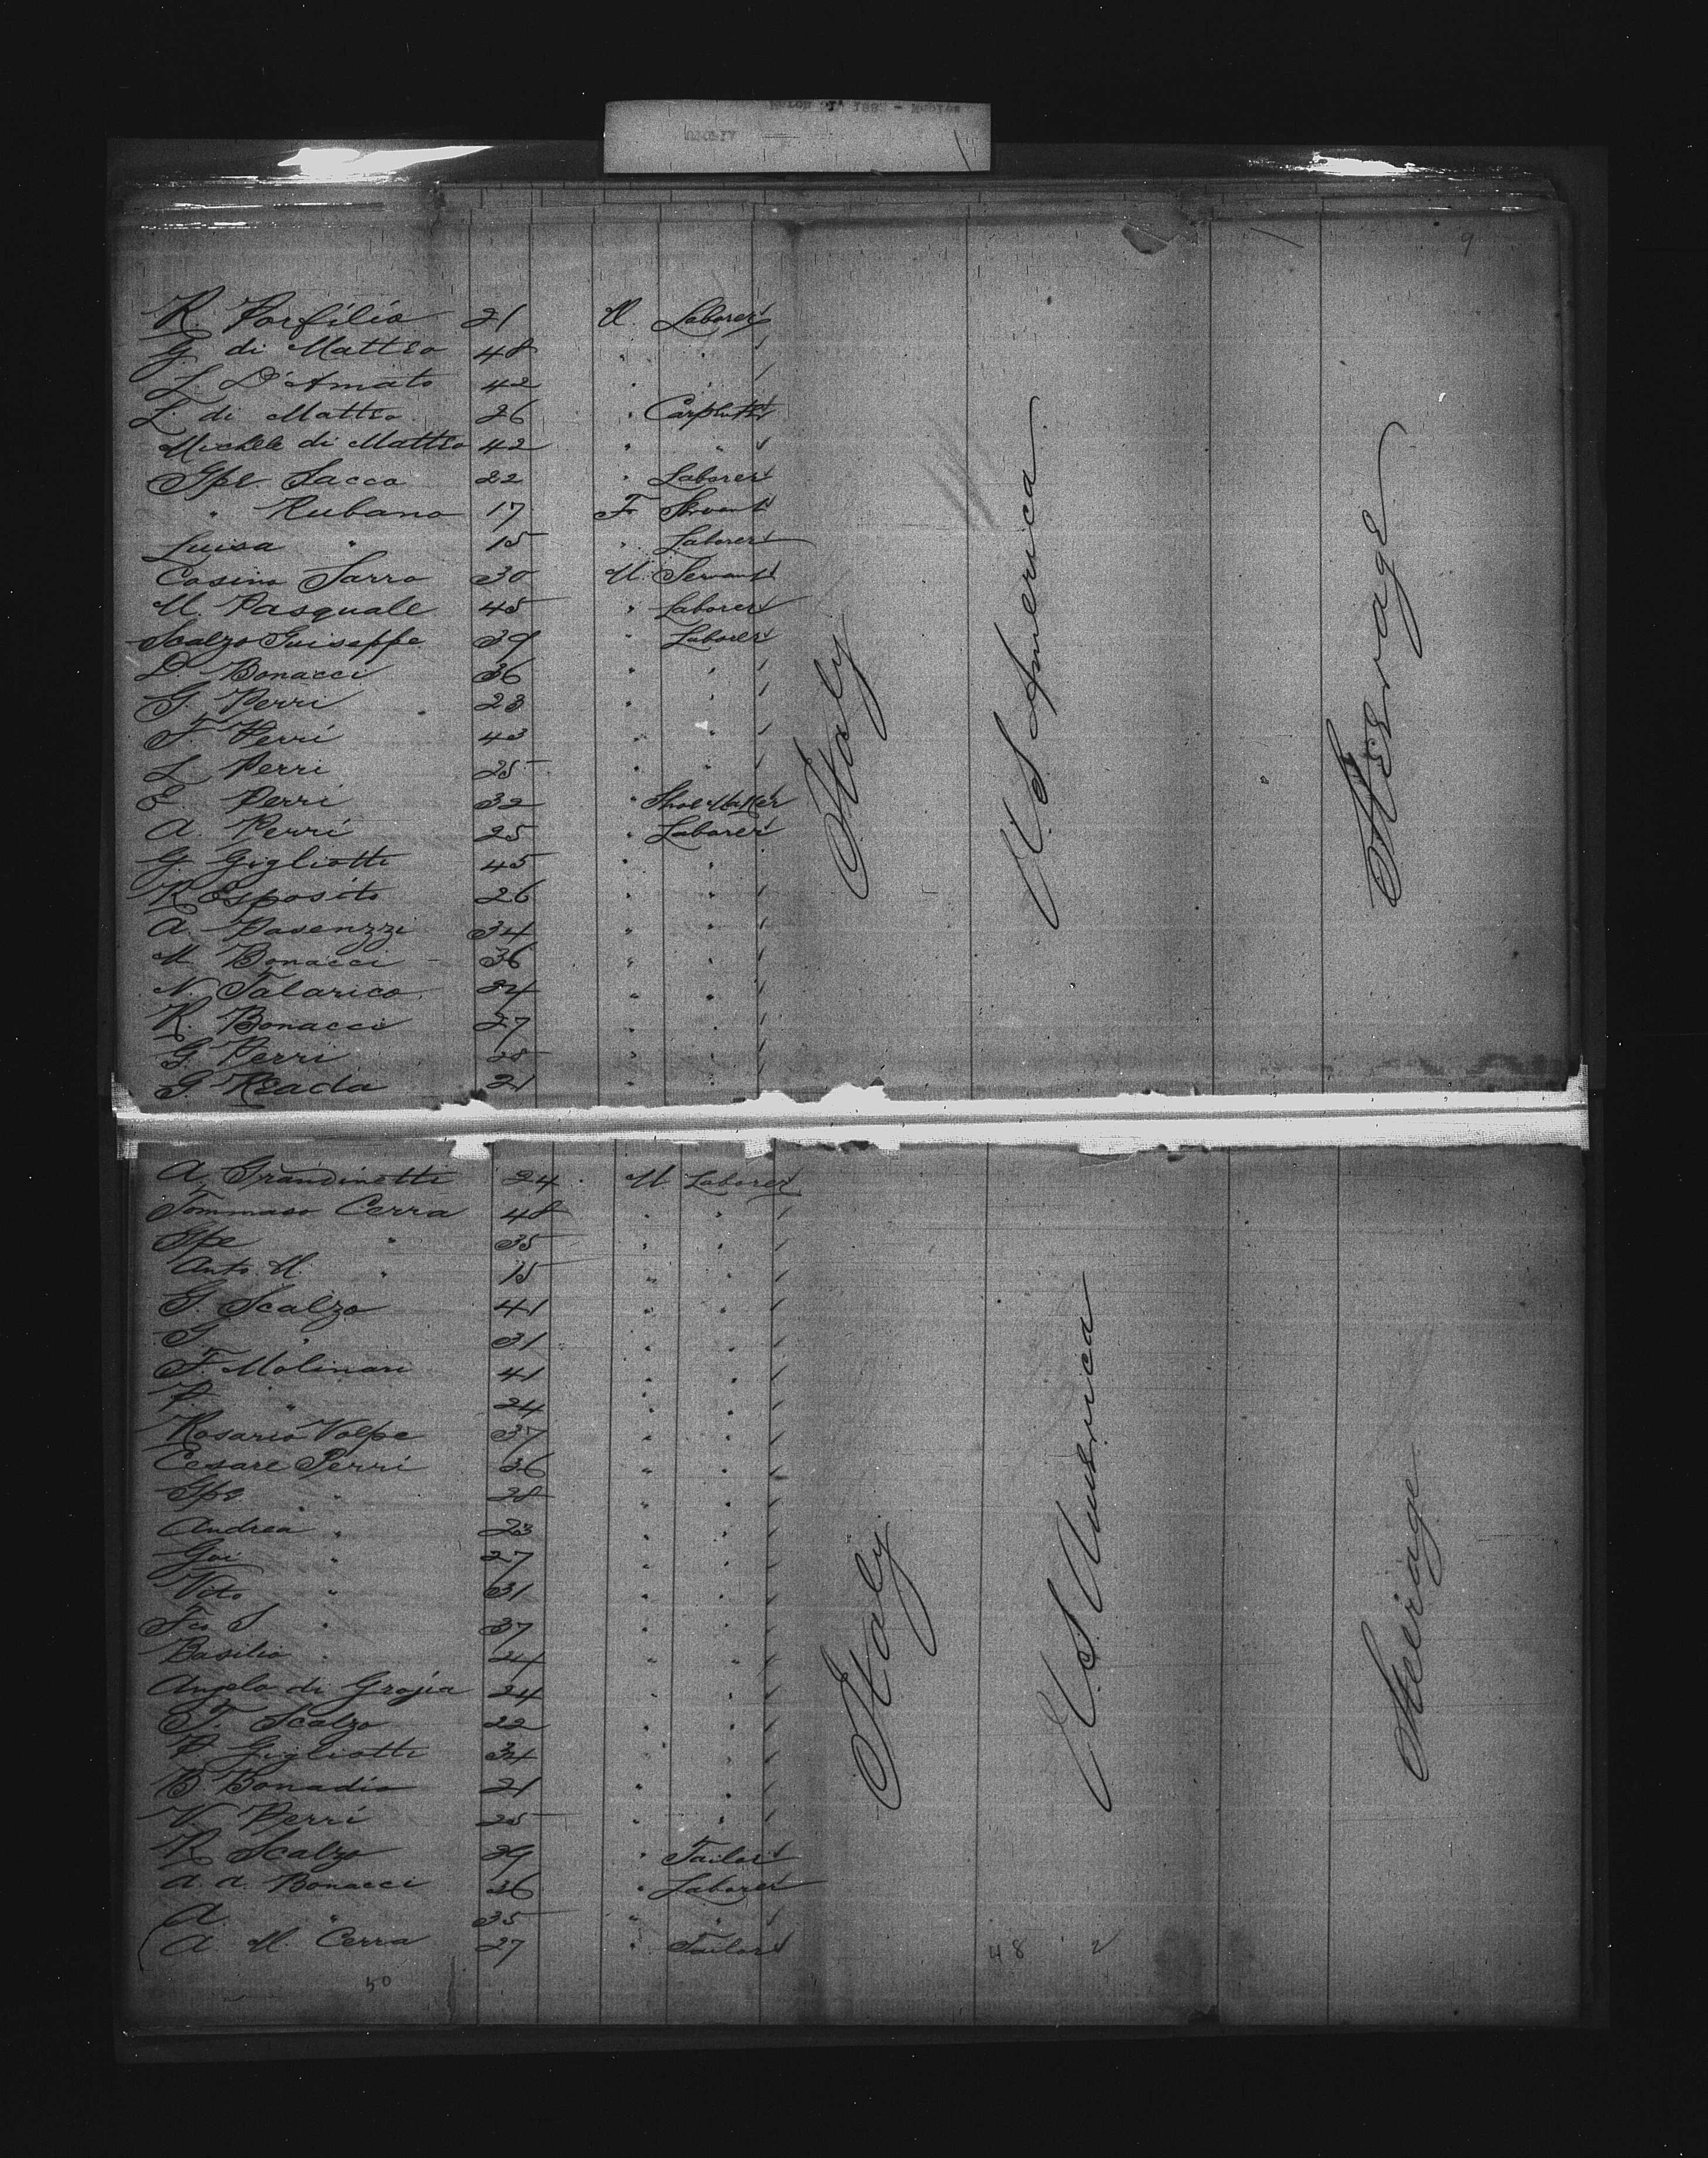 9
R. Porfilio 21 M Laborer
G. di Matteo 48 " "
L. D'Amato 42 " "
L. di Matteo 26 " Carpenter
Michele di Matteo 42 " "
Gpe. Sacco 22 " Laborer
" Rubano 17 F Servant
Luisa " 15 " Laborer
Cosino Sarro 30 M. Servant
M. Pasquale 45 " Laborer
Scalzo Guiseppe 39 " Laborer
D. Bonacci 36 " "
G. Perri 28 " "
F. Perri 43 " "
L. Perri 25 " "
E. Perri 32 " Shoe Maker
A. Perri 25 " Laborer
G. Gigliotti 45 " "
R. Esposito 26 " "
A. Pasenzzi 34 " "
M. Bonacci 36 " "
N. Talarico 24 " "
R. Bonacci 27 " "
G. Perri 28 " "
G. Reada 21 " "
Italy
U. S. America
Steerage
A. Grandinetti 24 M Laborer
Tommaso Cerra 48 " "
Gpe " 35 " "
Anto. M. " 15 " "
G. Scalzo 41 " "
G " 31 " "
F. Molinari 41 " "
P. " 24 " "
Rosario Volpe 37 " "
Cesare Perri 26 " "
Gpe " 28 " "
Andrea " 23 " "
Goi " 27 " "
Vito " 31 " "
Fco S " 37 " "
Basilio " 24 " "
Angelo di Grojia 24 " "
F. Scalzo 22 " "
P. Gigliotti 34 " "
B. Bonadio 21 " "
V. Perri 25 " "
R. Scalzo 29 " Tailor
A. A. Bonacci 26 " Laborer
A. " 35 " "
A. M. Cerra 27 " Tailor
Italy
U. S. America
Steerage
50
48